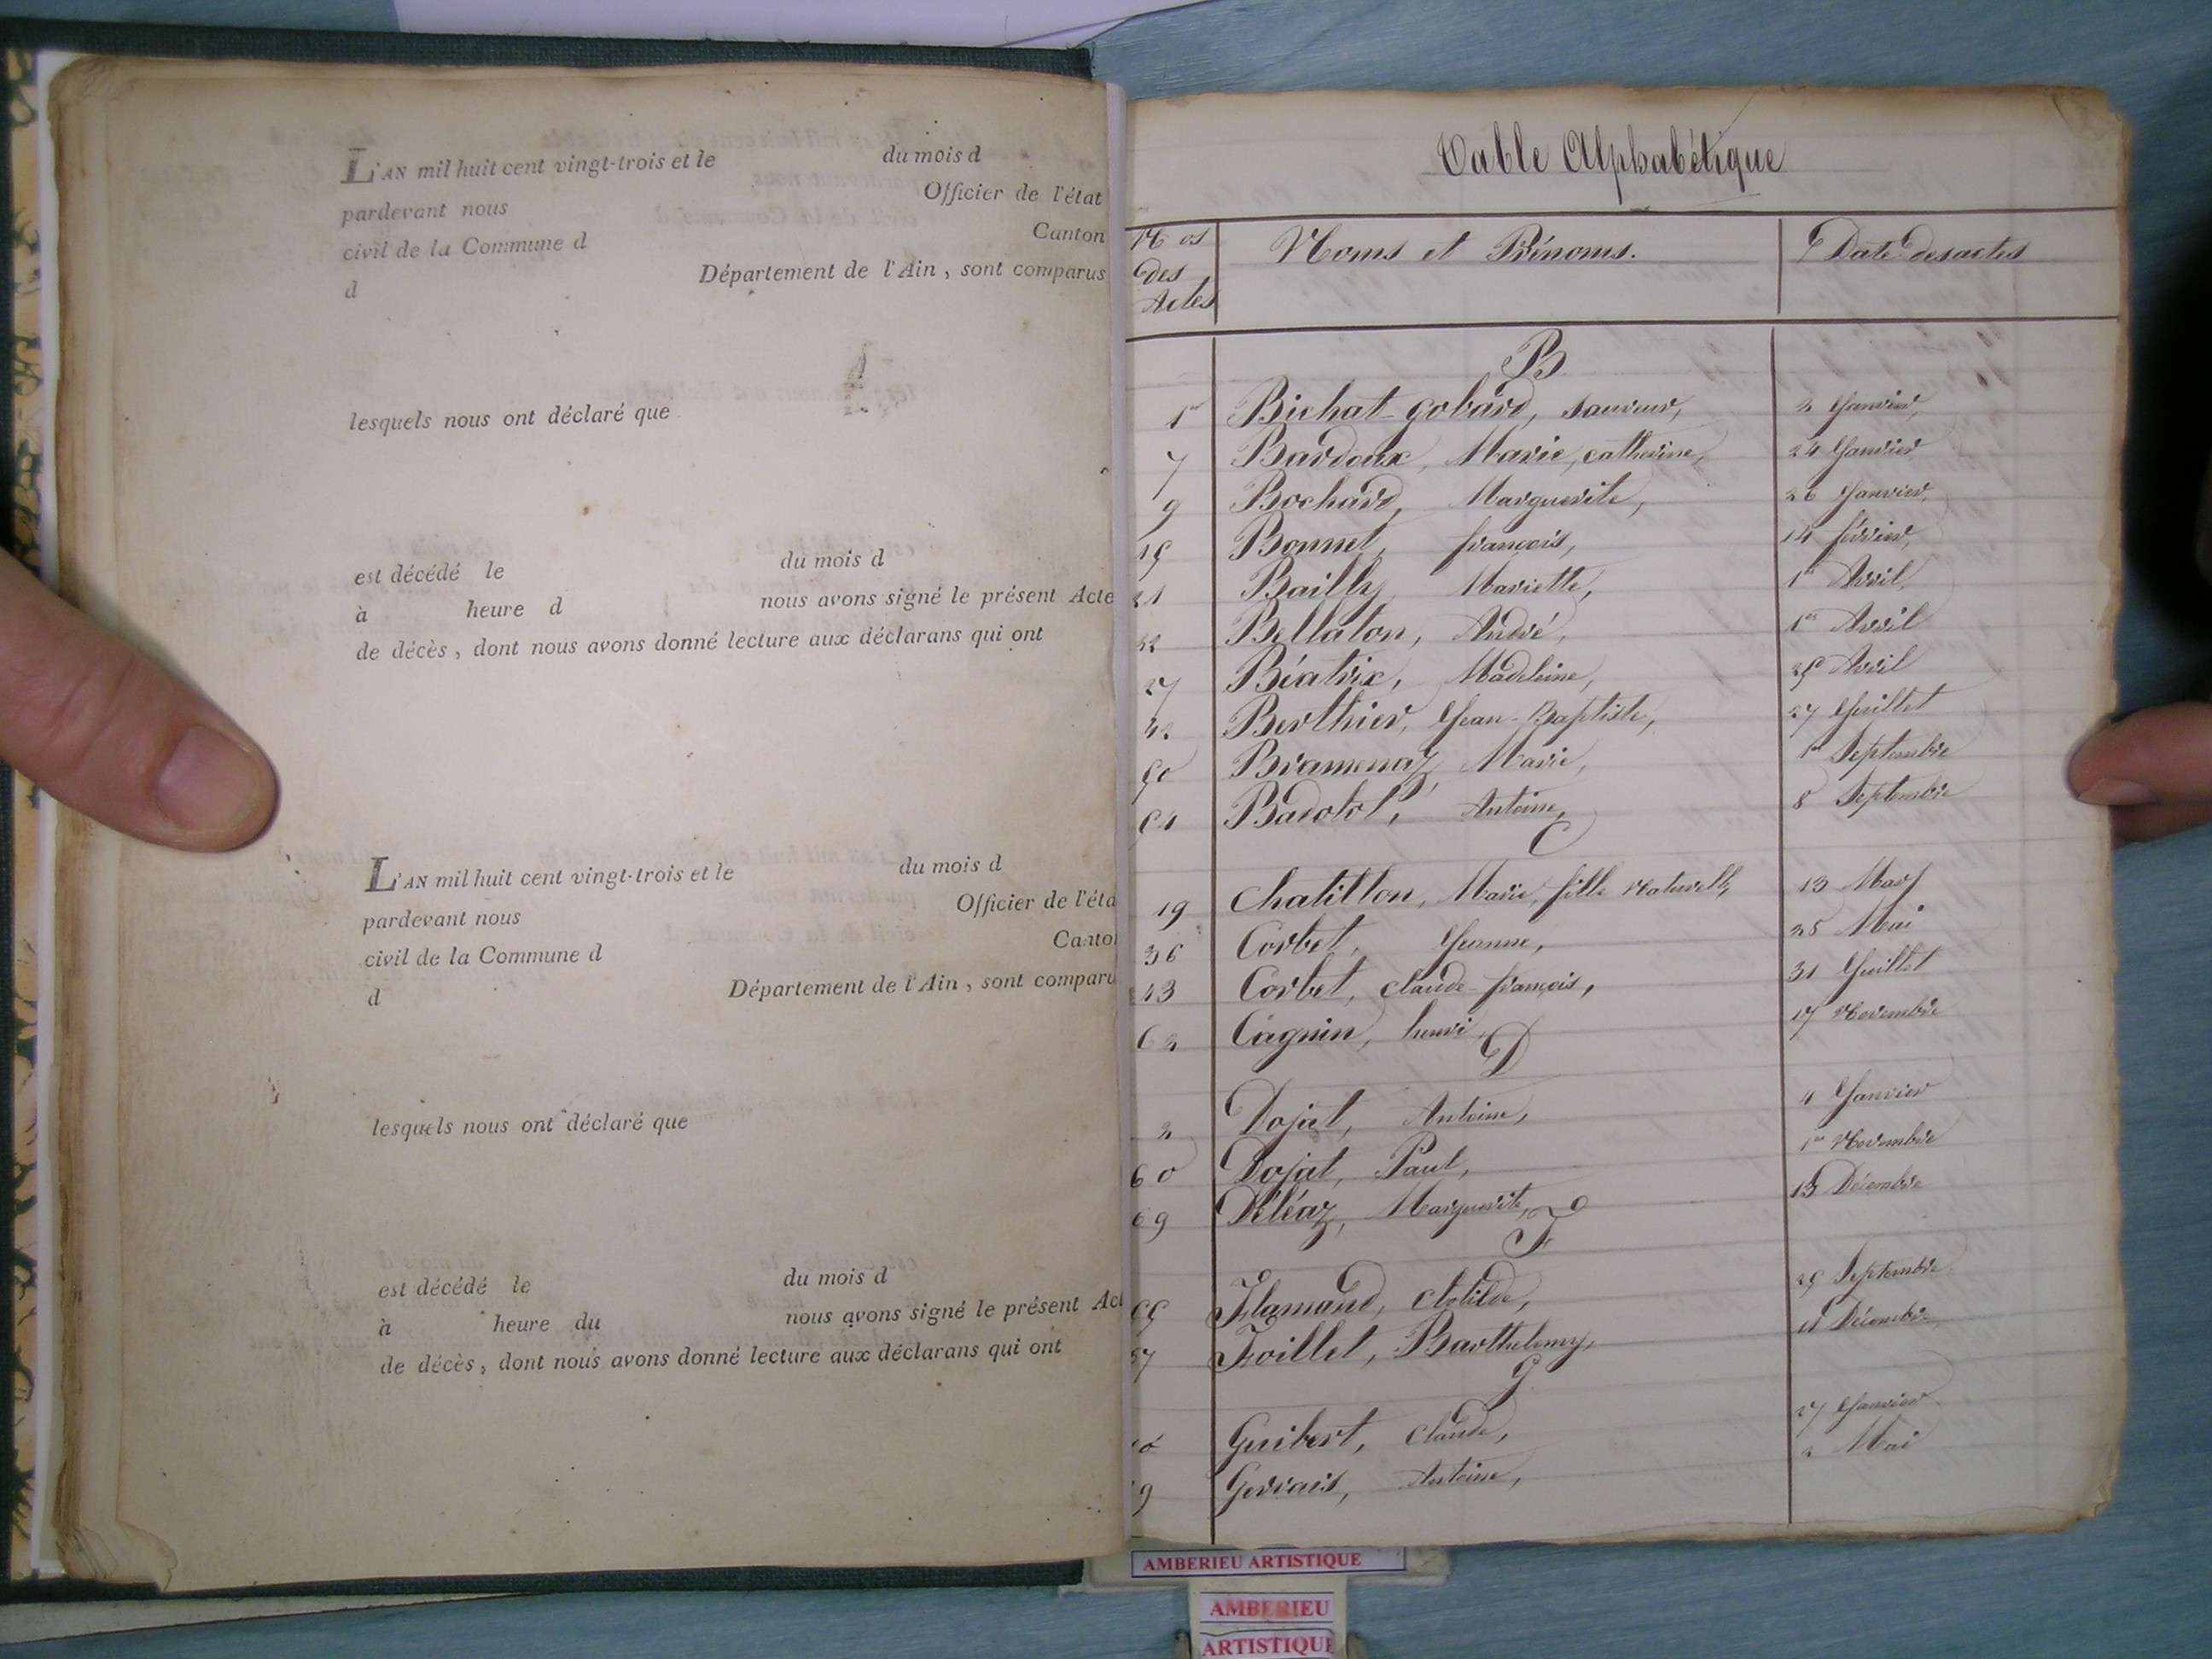 L'AN mil huit cent vingt-trois et le du mois d
pardevant nous Officier de l'état
civil de la Commune d Canton
d Département de l'Ain, sont comparus
lesquels nous ont déclaré que
est décédé le du mois d
à heure d nous avons signé le présent Acte
de décès, dont nous avons donné lecture aux déclarans qui ont
L'AN mil huit cent vingt-trois et le du mois d
pardevant nous Officier de l'éta
civil de la Commune d Canto
d Département de l'Ain, sont comparu
lesquels nous ont déclaré que
est décédé le du mois d
à heure du nous avons signé le présent Act
de décès, dont nous avons donné lecture aux déclarans qui ont
Table Alphabétique
Nos des Actes Noms et Prénoms. Date des actes
B
1er Bichat-gobard, sauveur, 2 Janvier,
7 Bardoux, Marie, catherine, 24 Janvier
9 Bochard, Marguerite, 26 Janvier,
15 Bonnet, françois, 14 février,
21 Bailly Mariette, 1er Avril,
22 Bellaton, André, 1er Avril
27 Béatrix, Madeleine, 25 Avril
42 Berthier, Jean-Baptiste, 27 Juillet
50 Bramenaz, Marie, 1er Septembre
51 Antoine, 8 Septembre
C
19 Chatillon, Marie, fille Naturelle, 13 Mars
36 Corbet, Jeanne, 28 Mai
43 Corbet, claude-françois, 31 Juillet
62 Cagnin, henri 17 Novembre
D
2 Dojat, Antoine, 4 Janvier
60 Dojat, Paul, 1er Novembre
69 Déléaz, Marguerite, 13 Décembre
F
55 Flamand, Clotilde, 25 Septembre
67 Foillet, Barthelemy, Décembre
G
Guibert, Claude, 27 Janvier
9 Gervais, Antoine, 2 Mai
AMBERIEU ARTISTIQUE
AMBERIEU
ARTISTIQUE